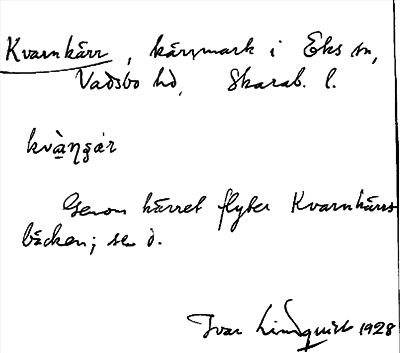 Kvarnkärr, kärrmark i Eks sn,
Vadsbo hd, Skarab. l.
kvà̱ŋɡár
Genom kärret flyter Kvarnkärrs
bäcken; se d.
Ivar Lindquist 1928